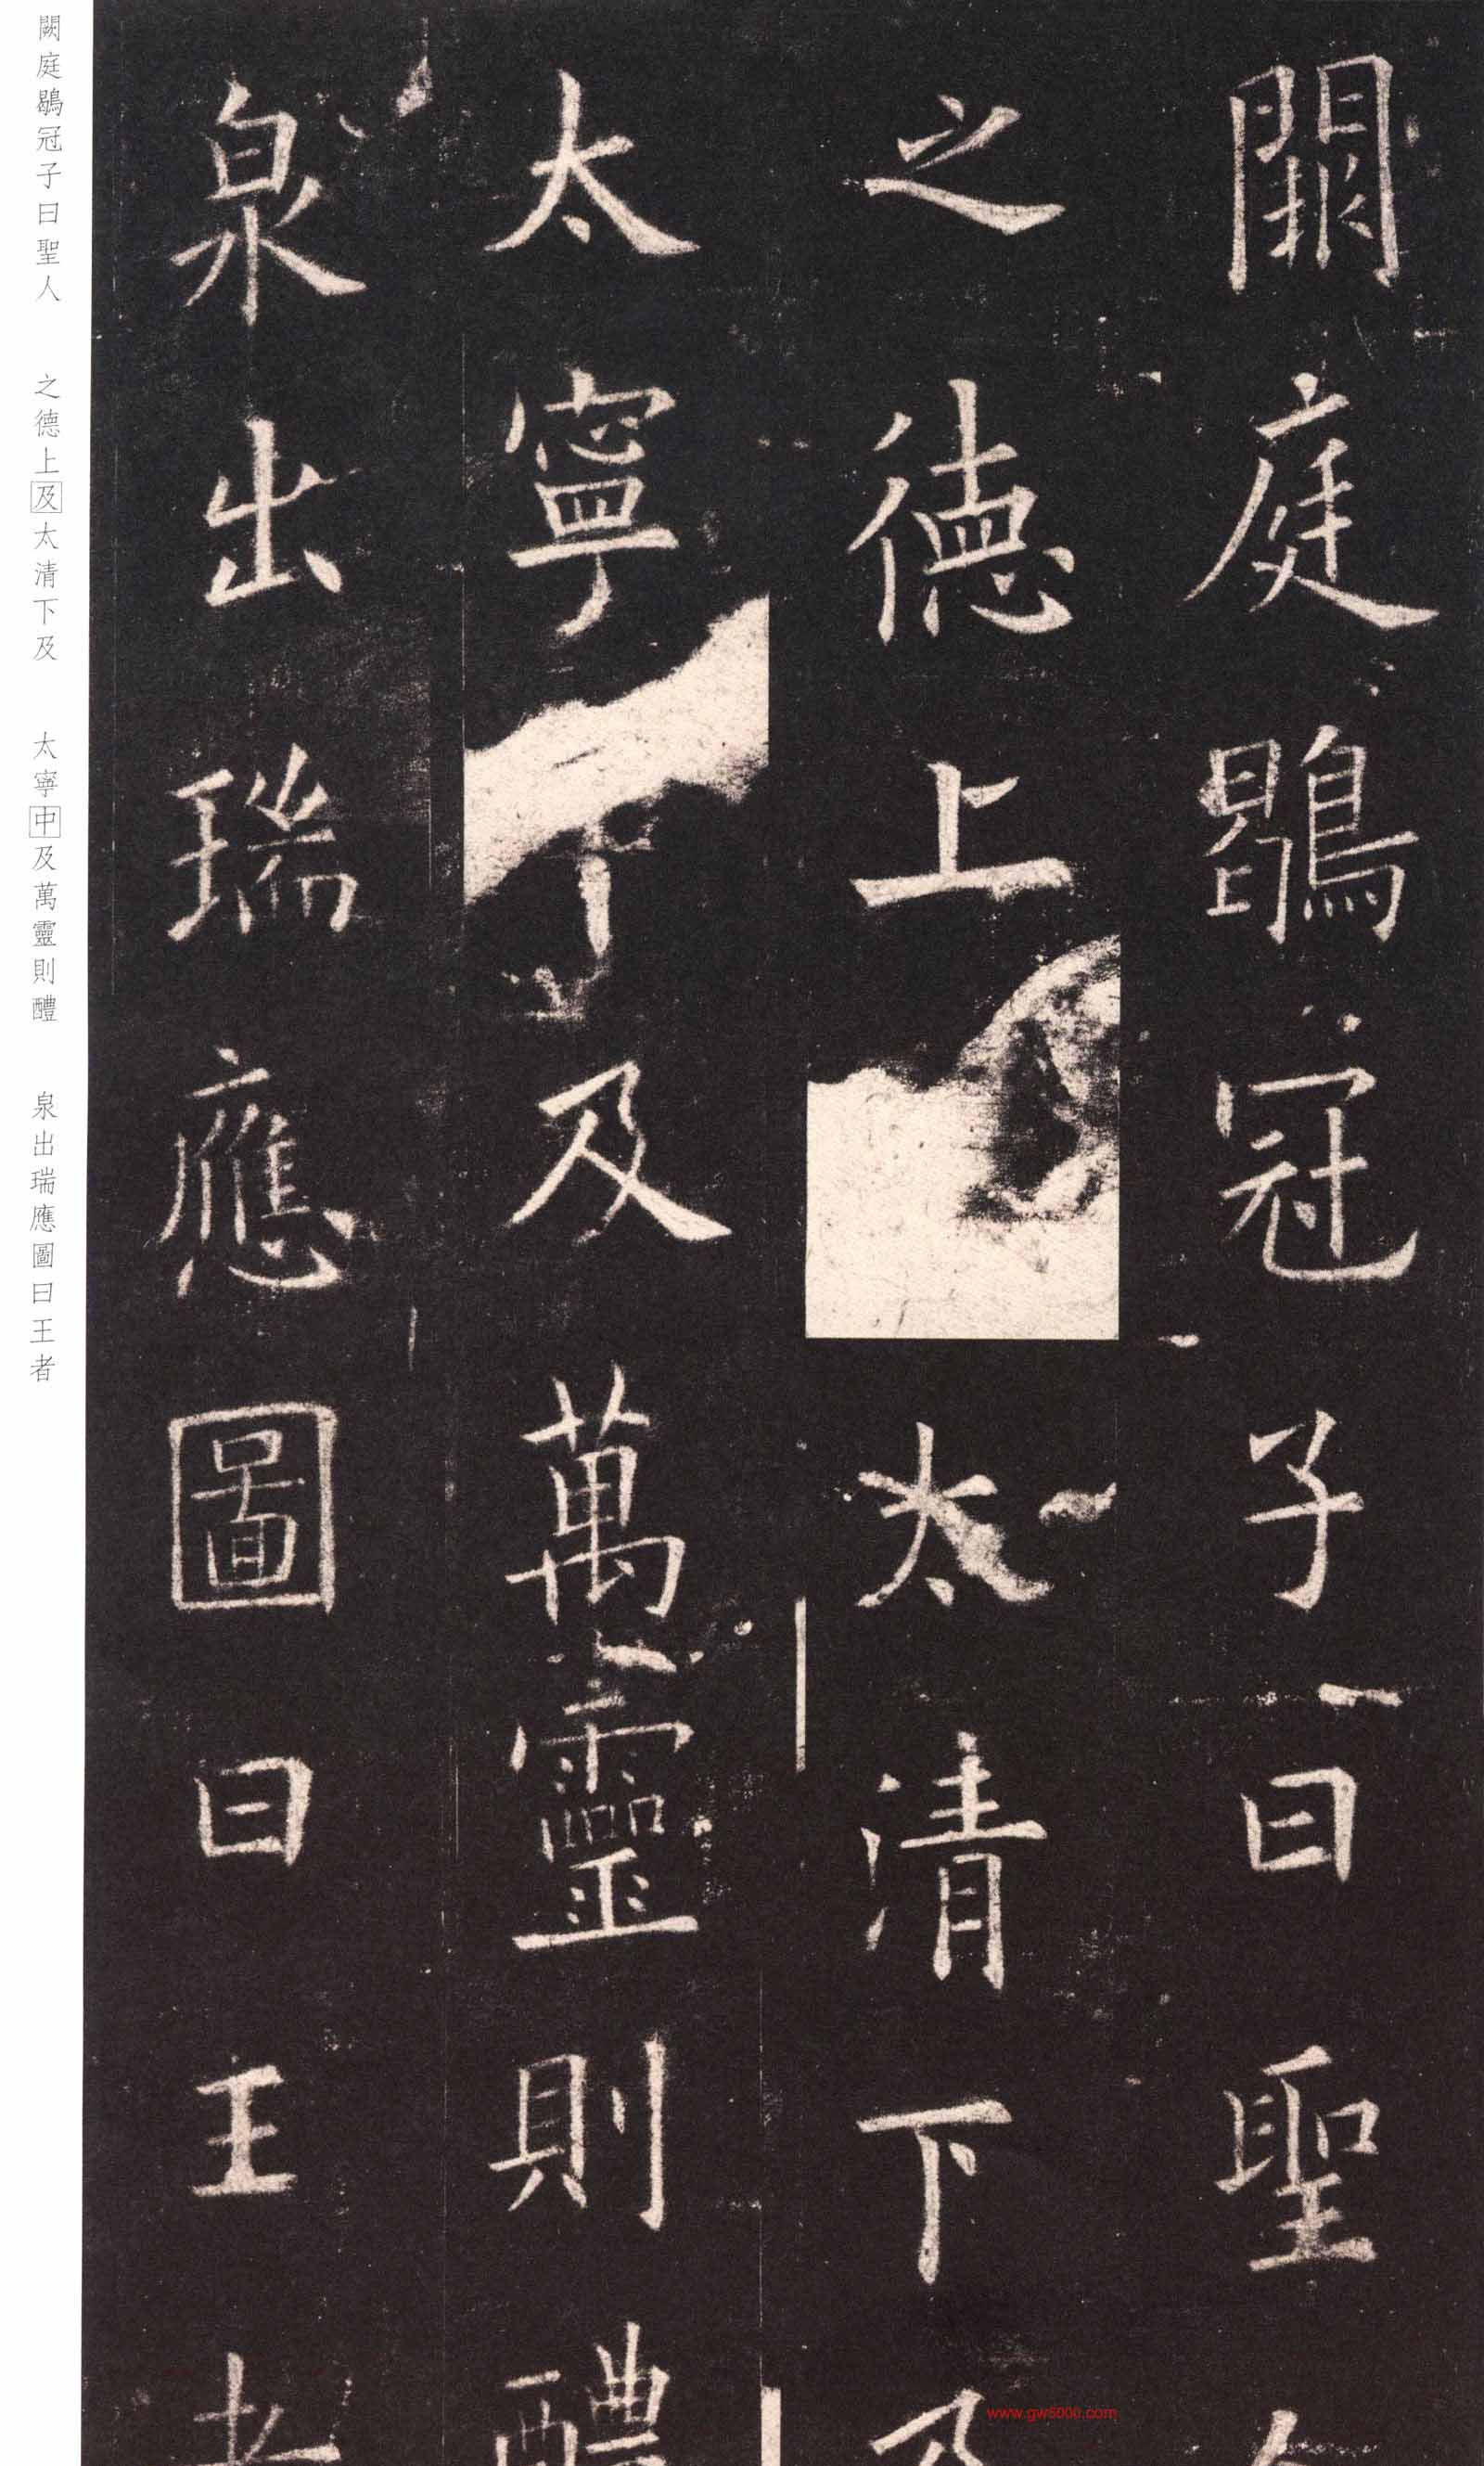 闕庭鶡冠子曰聖人
之德上太清下及
太寧中及萬靈則醴
泉出瑞應圖曰王者
闕庭鶡冠子曰聖人 之德上及太清下及 太寧中及萬靈則醴 泉出瑞應圖曰王者
www.gw5000.com